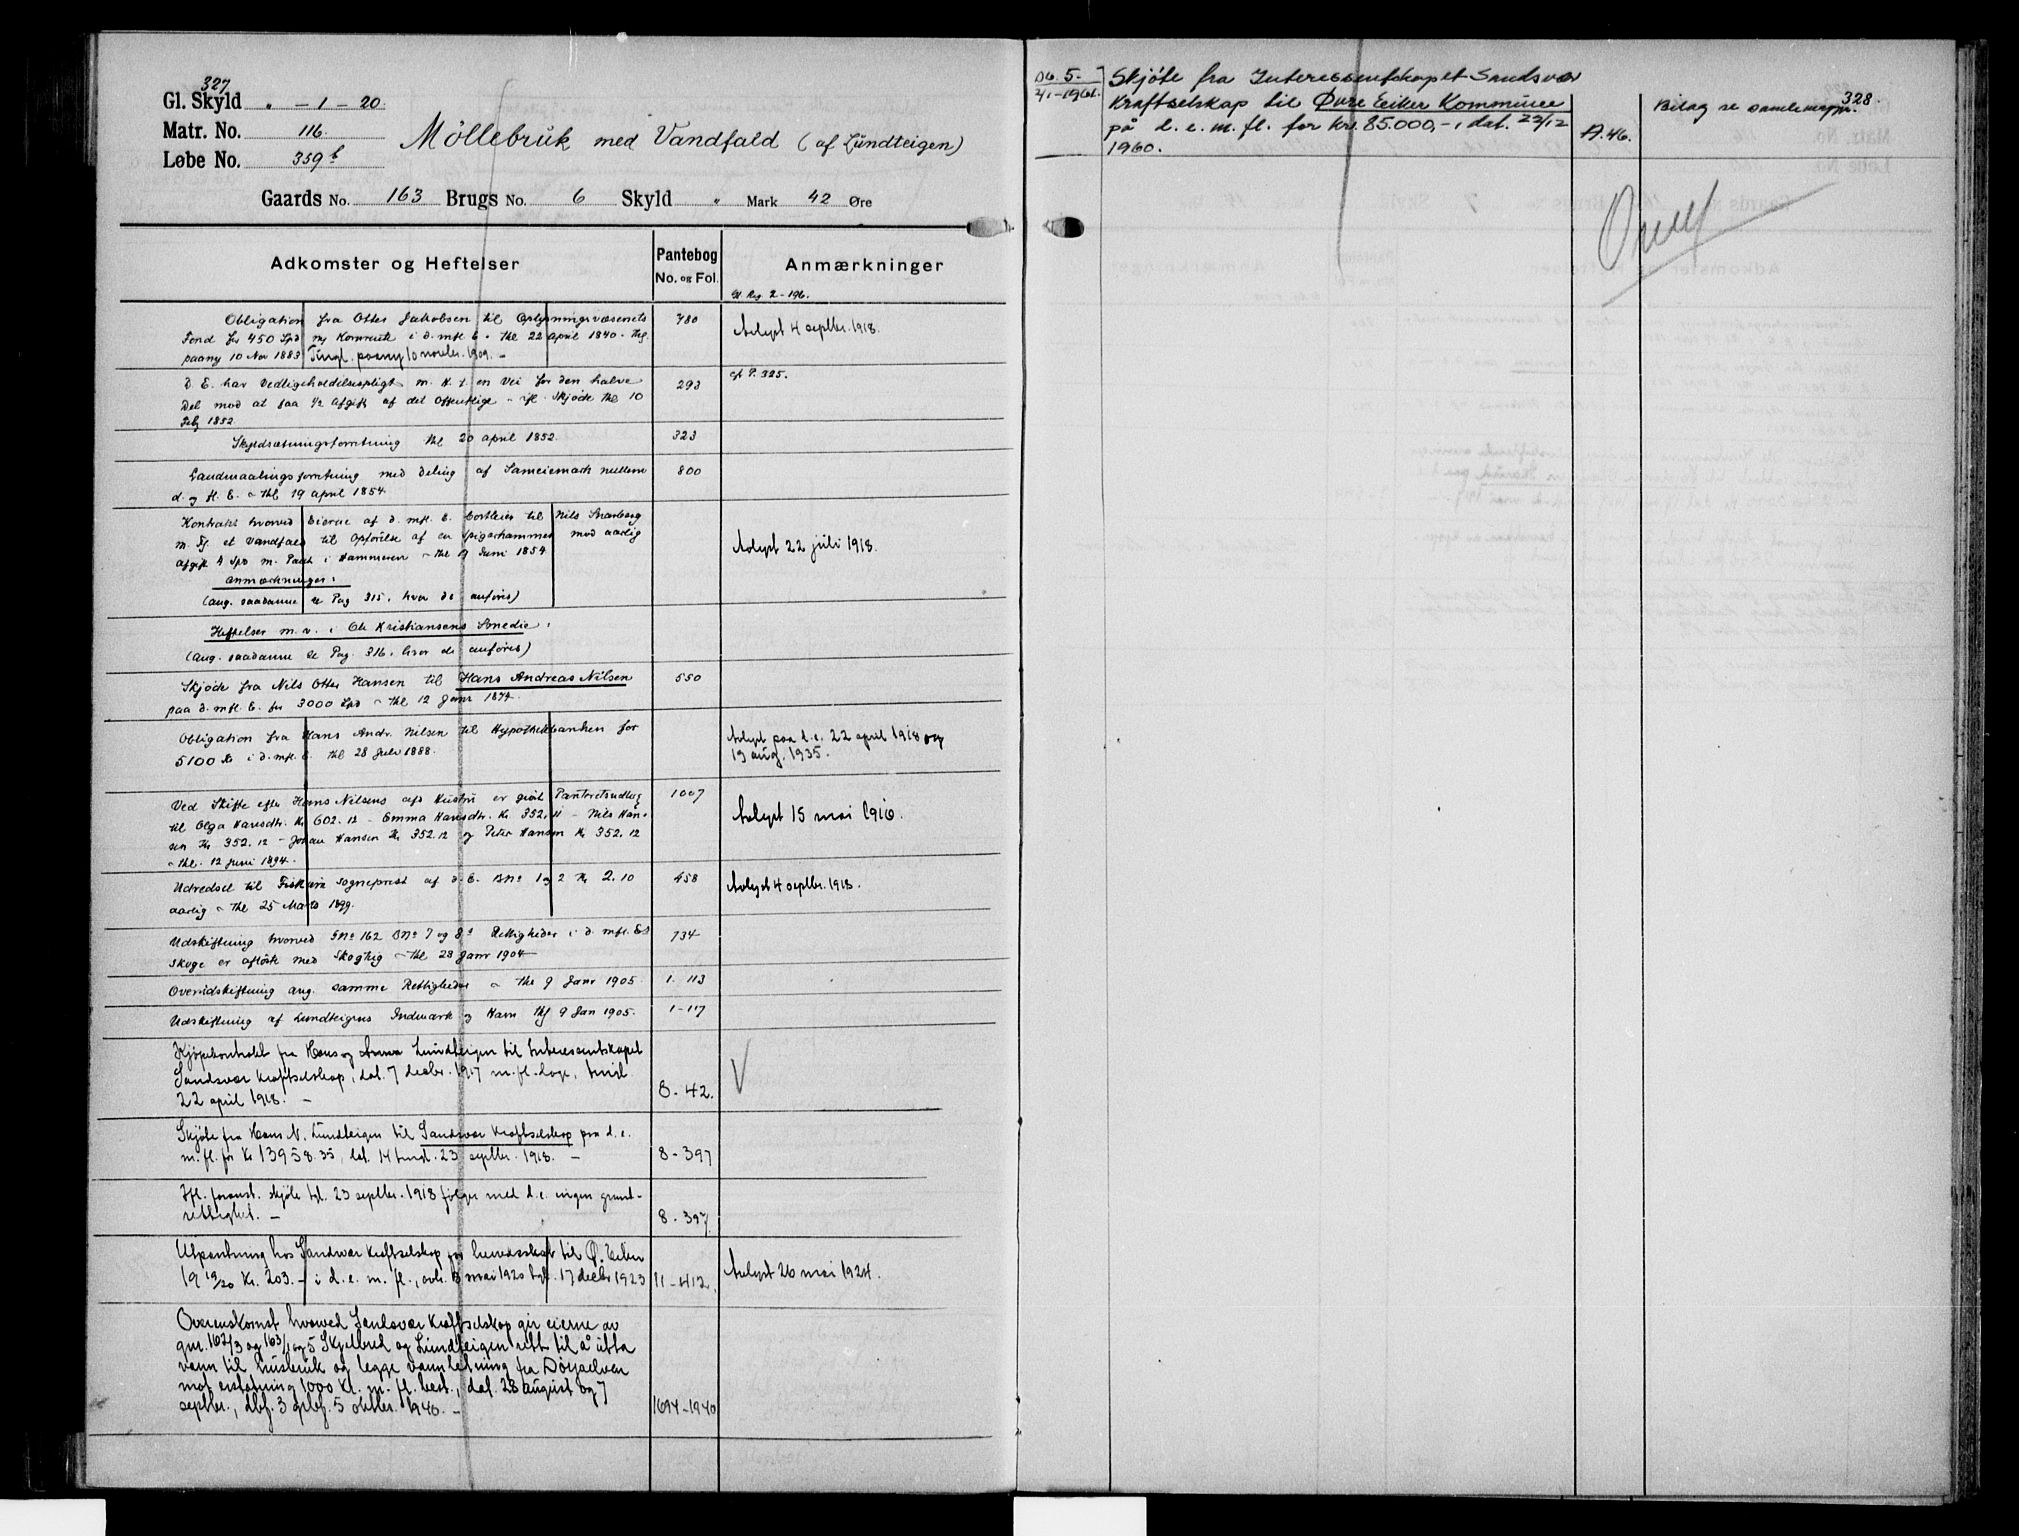 327
Gl. Skyld " - 1 - 20.
Matr. No. 116.
Løbe No. 359 b
Möllebruk med Vandfald (af Lundteigen)
Gaards No. 163 Brugs No. 6 Skyld " Mark 42 Øre
Adkomster og Heftelser
Pantebog
No. og Fol.
Anmærkninger
Gl. Reg. 2-196.
Obligation fra Otter Jakobsen til Oplysningsvæsenets 780
Fond for 450 Spd og Kornrente i d. mfl. E. - thl 22 april 1840 - thl. Avlyst 4 septbr. 1918.
paany 10 Nov 1883 Tingl. paany 10 novbr. 1909. -
D. E. har Vedligeholdelsespligt m. H. t. en Vei for den halve 293 cf P. 325.
Del mod at faa 1/2 Afgift af det Offentlige - ifl. Skjøde thl 10
Feb 1852
Skyldsætningsforretning thl 20 april 1852. 323
Landmaalingsforretning med Deling af Sameiemark mellem 800
d. og fl. E. - thl 19 april 1854.
Kontrakt hvorved Eierne af d. mfl. E. bortleier til Nils Snarberg
m. Fl. et Vandfald til Opførelse af en Spigerhammer mod aarlig Avlyst 22 juli 1918.
afgift 4 Spd m. Pant i Hammeren - thl 19 Juni 1854.
Anmærkninger:
(ang. saadanne se Pag 315, hvor de anføres)
Heftelser m. v. i Ole Kristiansens Smedie:
(ang. saadanne se Pag. 316, hvor de anføres)
Skjøde fra Nils Otter Hansen til Hans Andreas Nilsen 550
paa d. mfl. E. for 3000 Spd - thl 12 Janr 1874.
Obligation fra Hans Andr. Nilsen til Hypothekbanken for Avlyst paa d.e. 22 april 1918 og
5100 Kr i d. mfl. E. thl 28 Juli 1888. 19 aug. 1935.
Ved Skifte efter Hans Nilsens afd Hustru er gjort Panteretsudlæg 1007
til Olga Hansdtr. Kr 602.12 - Emma Hansdtr. Kr 352.11 - Nils Han- Avlyst 15 mai 1916.
sen Kr 352.12 - Johan Hansen Kr 352.12 og Peter Hansen Kr 352.12
- thl. 12 Juni 1894.
Udredsel til Fiskum Sogneprest af d. E. BNo 1 og 2 Kr 2.10 458 Avlyst 4 septbr. 1918.
aarlig - thl 25 Marts 1899.
Udskiftning hvorved GNo 162 BNo 7 og 8s Rettigheder i d. mfl. Es 734
Skoge er afløst med Skogteig - thl 28 Janr 1904
Overudskiftning ang. samme Rettigheder - thl 9 Janr 1905 1. 113
Udskiftning af Lundteigens Indmark og Havn thl 9 Jan 1905. 1-117
Kjøpekontrakt fra Hans og Anna Lundteigen til Interessentskapet
Sandsvær Kraftselskap, dat. 7 decbr. 1917 m. fl. dage, tingl 8-42. V
22 april 1918. -
Skjøte fra Hans N. Lundteigen til Sandsvær Kraftselskap paa d. e.
m. fl. for Kr 13958.35, dat. 14 tingl. 23 septbr. 1918. - 8-397
Ifl. foranst. skjøte tgl. 23 septbr. 1918 følger med d. e. ingen grund-
rettighet. - 8-397.
Utpantning hos Sandsvær Kraftselskap for herredsskat til Ø. Eiker
19 19/20 Kr. 203.- i d. e. m. fl., avh. 13 mai 1920 tgl. 17 decbr 1923 11-412. Avlyst 26 mai 1924.
Overenskomst hvorved Sandsvær Kraftselskap gir eierne av
gnr. 162/3 og 163/1 og 5 Skjelbred og Lundteigen rett til å utta
vann til husbruk og legge vannledning fra Dørjaelven
mot erstatning 1000 kr. m. fl. best., dat. 28 august og 7
septbr., dbf. 3 grbf. 5 oktbr. 1940. - 1694-1940
Db. 5-
2/1-1961.
Skjøte fra Interessentskapet Sandsvær
Kraftselskap til Øvre Eiker Kommune
på d. e. m. fl. for kr. 85.000,- i dat. 23/12
1960.
A.46.
Bilag se samlemappe.
328.